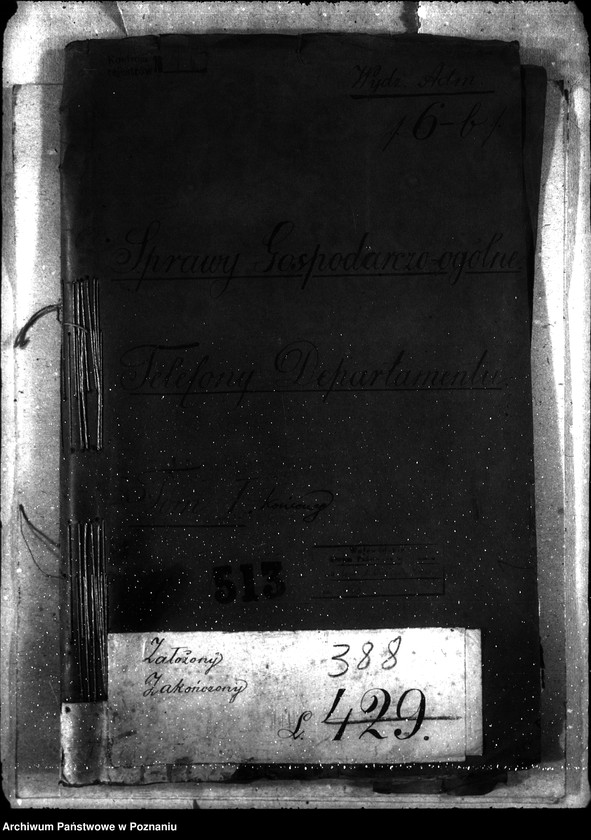 Wydz. Adm
/ 6-b /.
Sprawy Gospodarczo-ogólne
Telefony Departamentu
Tom I. końcowy
513
Założony
388
Zakończony
L. 429.
Archiwum Państwowe w Poznaniu